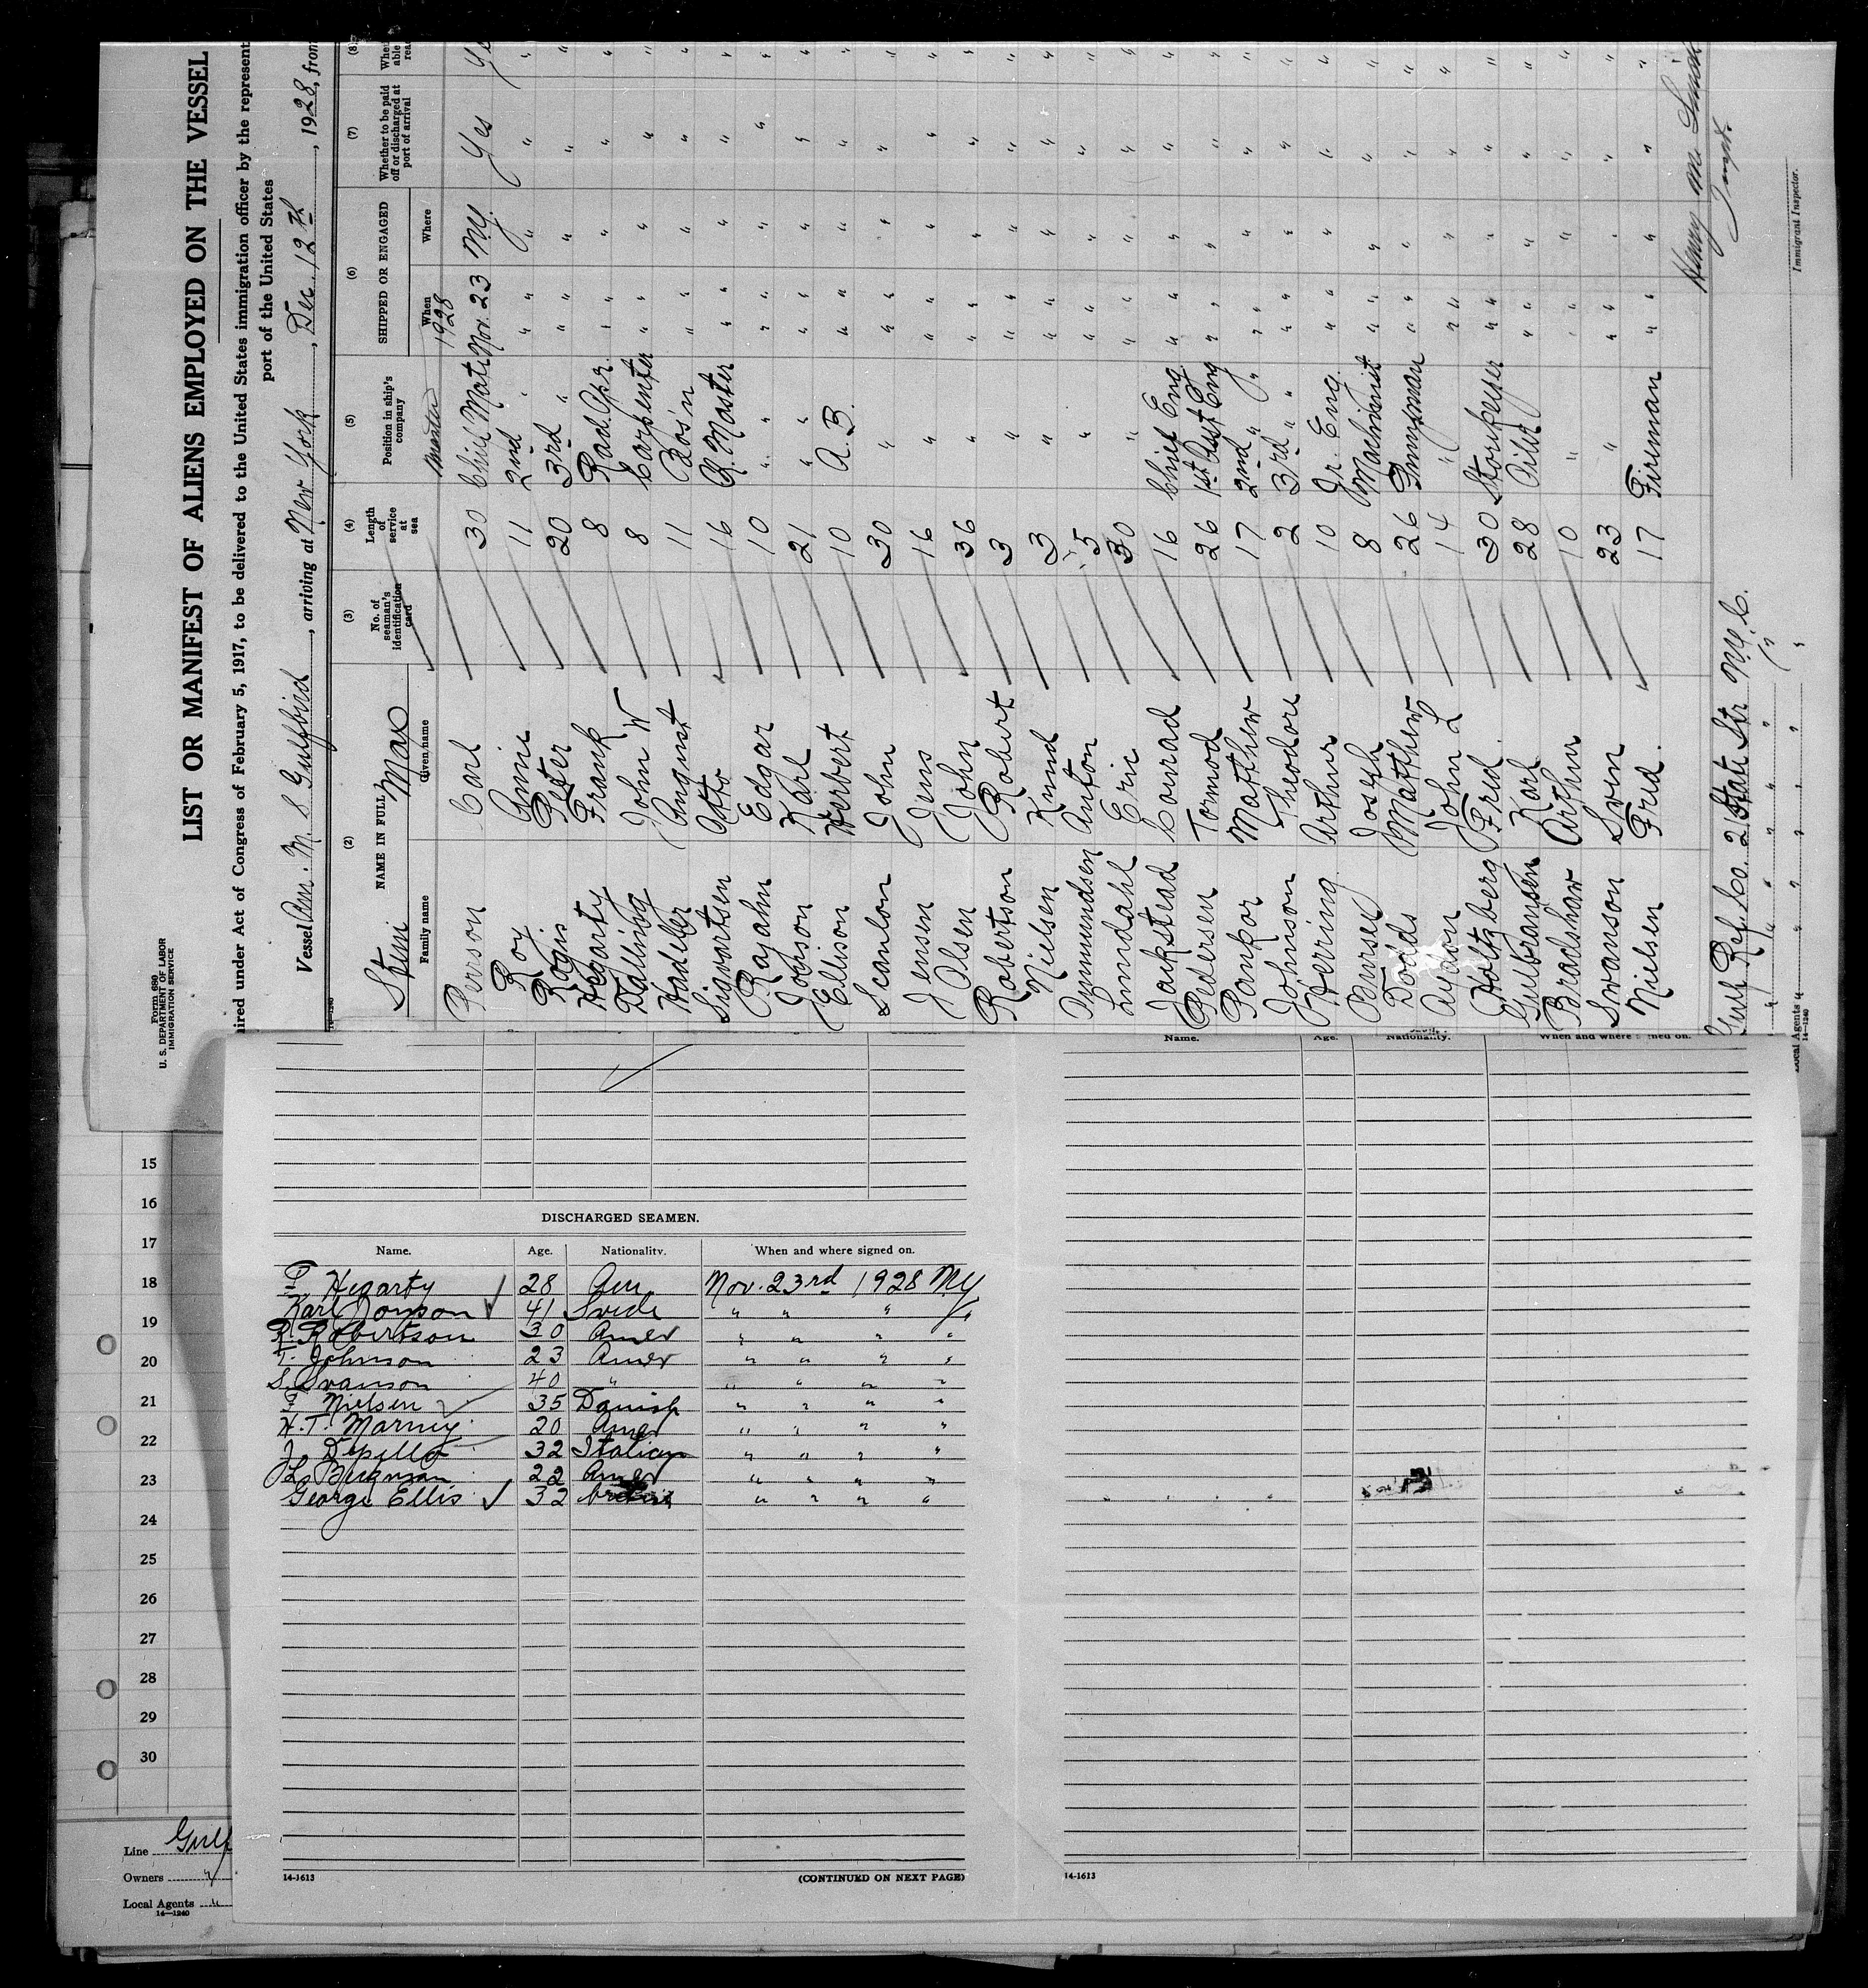 Form 689
U. S. DEPARTMENT OF LABOR
IMMIGRATION SERVICE
LIST OR MANIFEST OF ALIENS EMPLOYED ON THE VESSEL
ired under Act of Congress of February 5, 1917, to be delivered to the United States immigration officer by the represent
port of the United States
Vessel Am. M. S Gulfbird, arriving at New York, Dec. 12th, 1928, from
(2) (3) (4) (5) (6) (7) (8)
NAME IN FULL No. of seaman's identification card Length of service at sea Position in ship's company SHIPPED OR ENGAGED Whether to be paid off or discharged at port of arrival
Family name Given name When Where
1928
Max Master
Pearson Carl 30 Chief Mate Nov. 23 N.Y. Yes Ye
Roy 11 2nd " " " " " "
Peter 20 3rd " " " " " "
Hegarty Frank 8 Rad. Opr. " " " " "
Dalling John W 8 Carpenter " " " " "
August 11 Bos'n " " " " "
Sigvartsen Otto 16 Q. Master " " " " "
Rajahn Edgar 10 " " " " " "
Jonson Karl 21 " " " " " "
Ellison Herbert 10 A. B. " " " " "
Scanlon John 30 " " " " " "
Jensen Jens 16 " " " " " "
Olsen John 36 " " " " " "
Robertson Robert 3 " " " " " "
Nielsen Knud 3 " " " " " "
Anton 5 " " " " " "
Lundahl Eric 30 " " " " " "
Jackstead Conrad 16 Chief Eng " " " " "
Pedersen Tormod 26 1st Asst Eng " " " " "
Mathew 17 2nd " " " " " " "
Johnson Theodore 2 3rd " " " " " " "
Herring Arthur 10 Jr. Eng. " " " " "
Joseph 8 Machinist " " " " "
Dodds Matthew 26 Pumpman " " " " "
John L 14 " " " " " "
Holtzberg Fred 30 Storekeeper " " " " "
Gulbransen Karl 28 Oiler " " " " "
Bradshaw Arthur 10 " " " " " "
Svanson Sven 23 " " " " " "
Nielsen Fred. 17 Fireman " " " " "
Henry M.
Immigrant Inspector.
Gulf Ref. Co. 21 State Str N.Y. C.
" " " " " "
Local Agents " " " " " "
14—1240
15
16
17
18
19
20
21
22
23
24
25
26
27
28
29
30
Line Gulf
Owners "
Local Agents "
14—1240
DISCHARGED SEAMEN.
Name. Age. Nationality. When and where signed on.
Hegarty 28 Am Nov. 23rd 1928 NY
Karl Jonson 41 Swede " " " "
R. Robertson 30 Amer " " " "
T. Johnson 23 Amer " " " "
S. Svanson 40 " " " " "
F Nielsen 35 Danish " " " "
H. T. Marney 20 Amer " " " "
J. Depillo 32 Italian " " " "
Bergman 22 Amer " " " "
George Ellis 32 " " " "
14-1613 (CONTINUED ON NEXT PAGE)
Name. Age. Nationality. When and where signed on.
14-1613